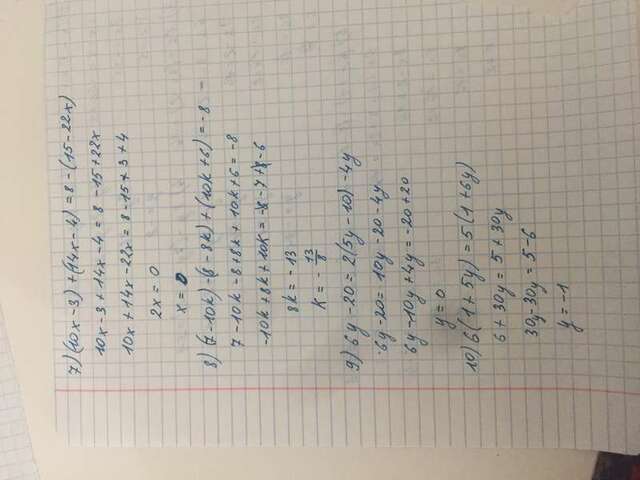 7) (10x - 3) + (14x - 4) = 8 - (15 - 22x)
10x - 3 + 14x - 4 = 8 - 15 + 22x
10x + 14x - 22x = 8 - 15 + 3 + 4
2x = 0
x = 0
8) (7 - 10k) - (8 - 8k) + (10k + 6) = -8
7 - 10k - 8 + 8k + 10k + 6 = -8
-10k + 8k + 10k = -8 - 7 + 8 - 6
8k = -13
k = - 13/8
9) 6y - 20 = 2(5y - 10) - 4y
6y - 20 = 10y - 20 - 4y
6y - 10y + 4y = -20 + 20
y = 0
10) 6(1 + 5y) = 5(1 + 6y)
6 + 30y = 5 + 30y
30y - 30y = 5 - 6
y = -1